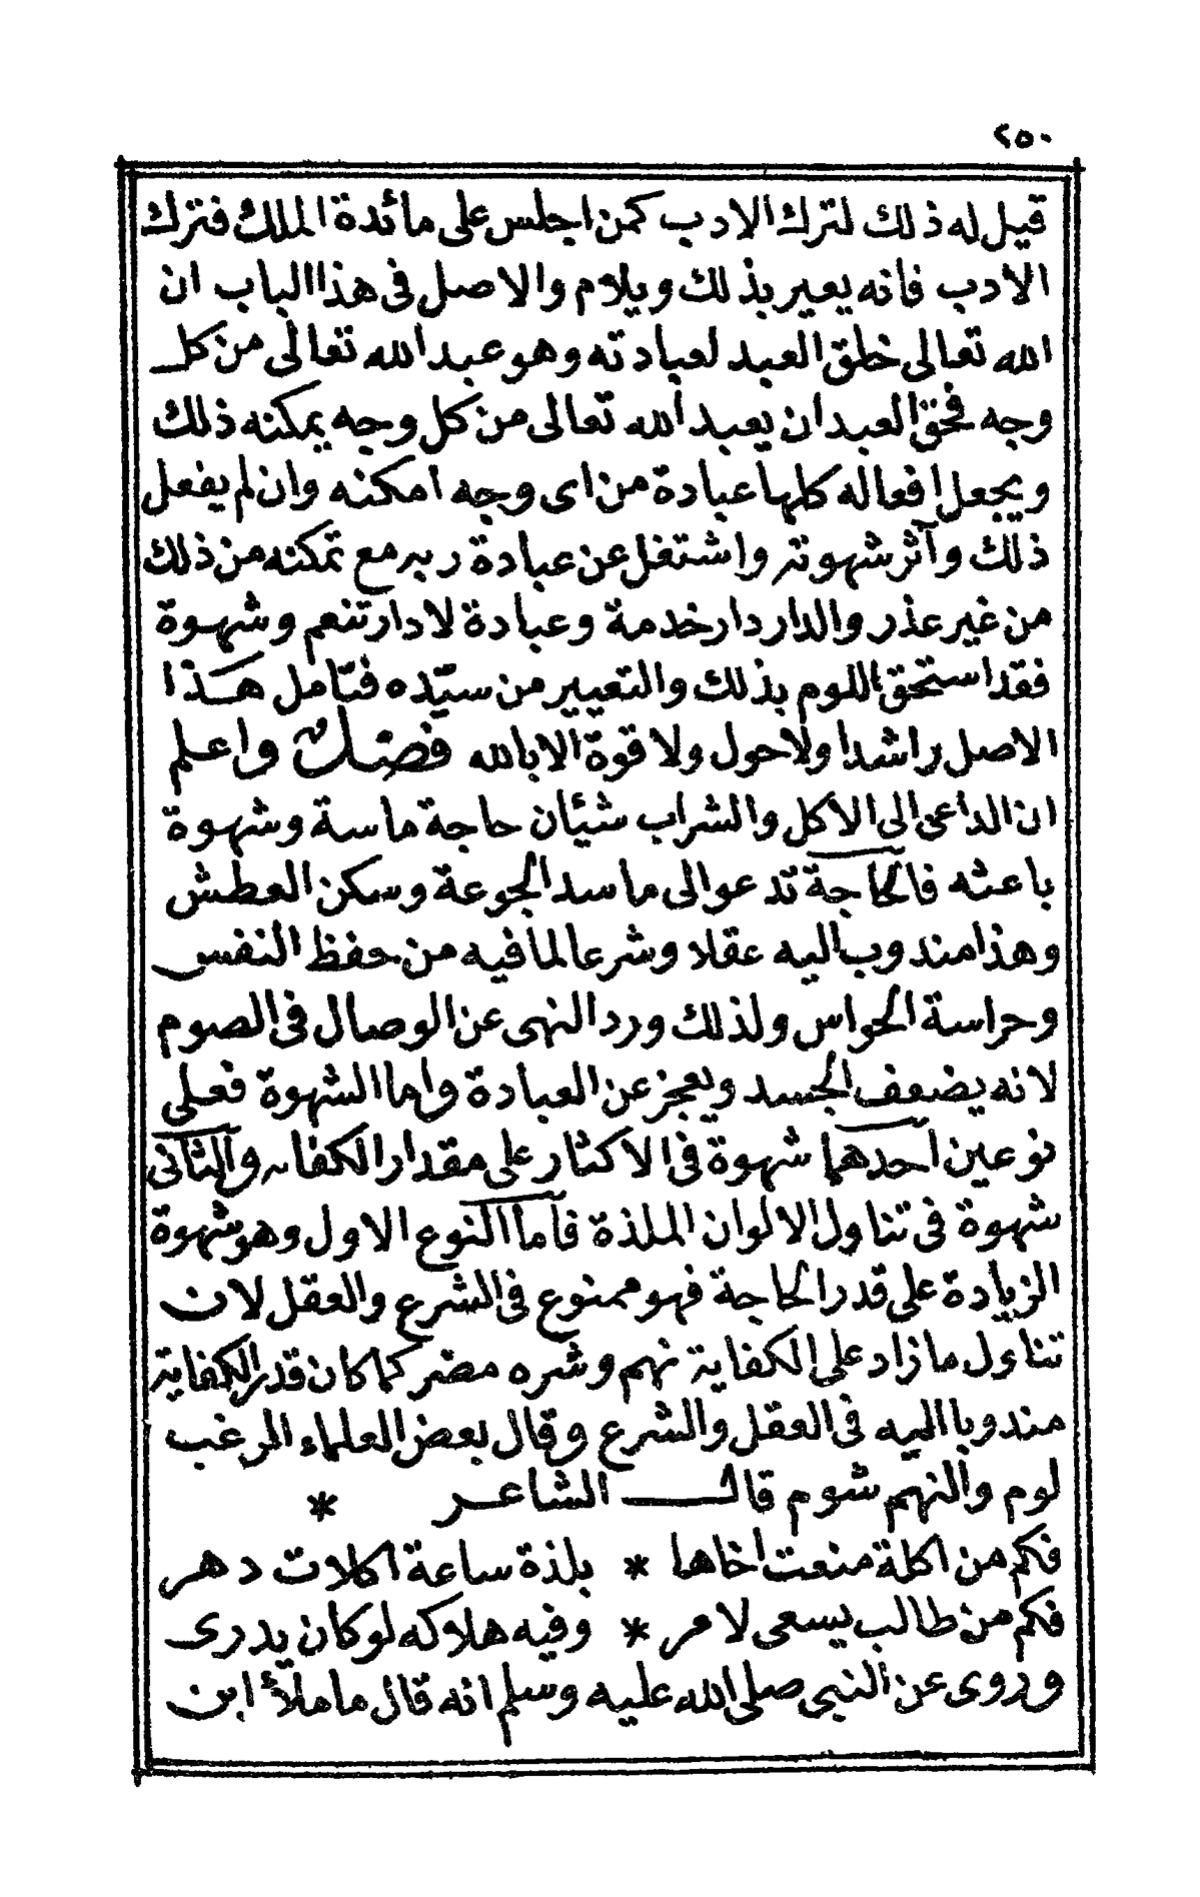 ٢٥٠
قيل له ذلك لترك الادب كمن اجلس على مائدة الملك فترك
الادب فانه يعير بذلك ويلام والاصل فى هذا الباب ان
الله تعالى خلق العبد لعبادته وهو عبد الله تعالى من كل
وجه فحق العبد ان يعبد الله تعالى من كل وجه يمكنه ذلك
ويجعل افعاله كلها عبادة من اى وجه امكنه وان لم يفعل
ذلك وآثر شهوته واشتغل عن عبادة ربه مع تمكنه من ذلك
من غير عذر والدار دار خدمة وعبادة لا دار تنعم وشهوة
فقد استحق اللوم بذلك والتعيير من سيّده فتأمل هذا
الاصل راشدا ولاحول ولا قوة الا بالله فصل واعلم
ان الداعى الى الاكل والشراب شيئان حاجة ماسة وشهوة
باعثه فالحاجة تدعو الى ما سد الجوعة وسكن العطش
وهذا مندوب اليه عقلا وشرعا لما فيه من حفظ النفس
وحراسة الحواس ولذلك ورد النهى عن الوصال فى الصوم
لانه يضعف الجسد ويعجز عن العبادة واما الشهوة فعلى
نوعين احدهما شهوة فى الاكثار على مقدار الكفايه والثانى
شهوة فى تناول الالوان الملذة فأما النوع الاول وهو شهوة
الزيادة على قدر الحاجة فهو ممنوع فى الشرع والعقل لان
تناول ما زاد على الكفاية نهم وشره مضر كما كان قدر الكفاية
مندوبا اليه فى العقل والشرع وقال بعض العلماء الرغب
لوم والنهم شوم قال الشاعر *
فكم من اكلة منعت اخاها * بلذة ساعة اكلات دهر
فكم من طالب يسعى لامر * وفيه هلاكه لو كان يدرى
وروى عن النبى صلى الله عليه وسلم انه قال ما ملأ ابن